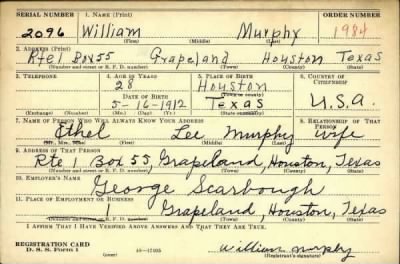 SERIAL NUMBER 1. NAME (Print) ORDER NUMBER
2096 William Murphy 1984
(First) (Middle) (Last)
2. ADDRESS (Print)
Rte 1 Box 55 Grapeland Houston Texas
(Number and street or R. F. D. number) (Town) (County) (State)
3. TELEPHONE 4. AGE IN YEARS 5. PLACE OF BIRTH 6. COUNTRY OF CITIZENSHIP
28 Houston
DATE OF BIRTH (Town or county)
5-16-1912 Texas U.S.A.
(Exchange) (Number) (Mo.) (Day) (Yr.) (State or country)
7. NAME OF PERSON WHO WILL ALWAYS KNOW YOUR ADDRESS 8. RELATIONSHIP OF THAT PERSON
Ethel Lee Murphy wife
(Mr., Mrs., Miss) (First) (Middle) (Last)
9. ADDRESS OF THAT PERSON
Rte 1 Box 55, Grapeland, Houston, Texas
(Number and street or R. F. D. number) (Town) (County) (State)
10. EMPLOYER'S NAME
George Scarbough
11. PLACE OF EMPLOYMENT OR BUSINESS
1 Grapeland, Houston, Texas
(Number and street or R. F. D. number) (Town) (County) (State)
I AFFIRM THAT I HAVE VERIFIED ABOVE ANSWERS AND THAT THEY ARE TRUE.
REGISTRATION CARD
D. S. S. Form 1 16-17105 William Murphy
(Registrant's signature)